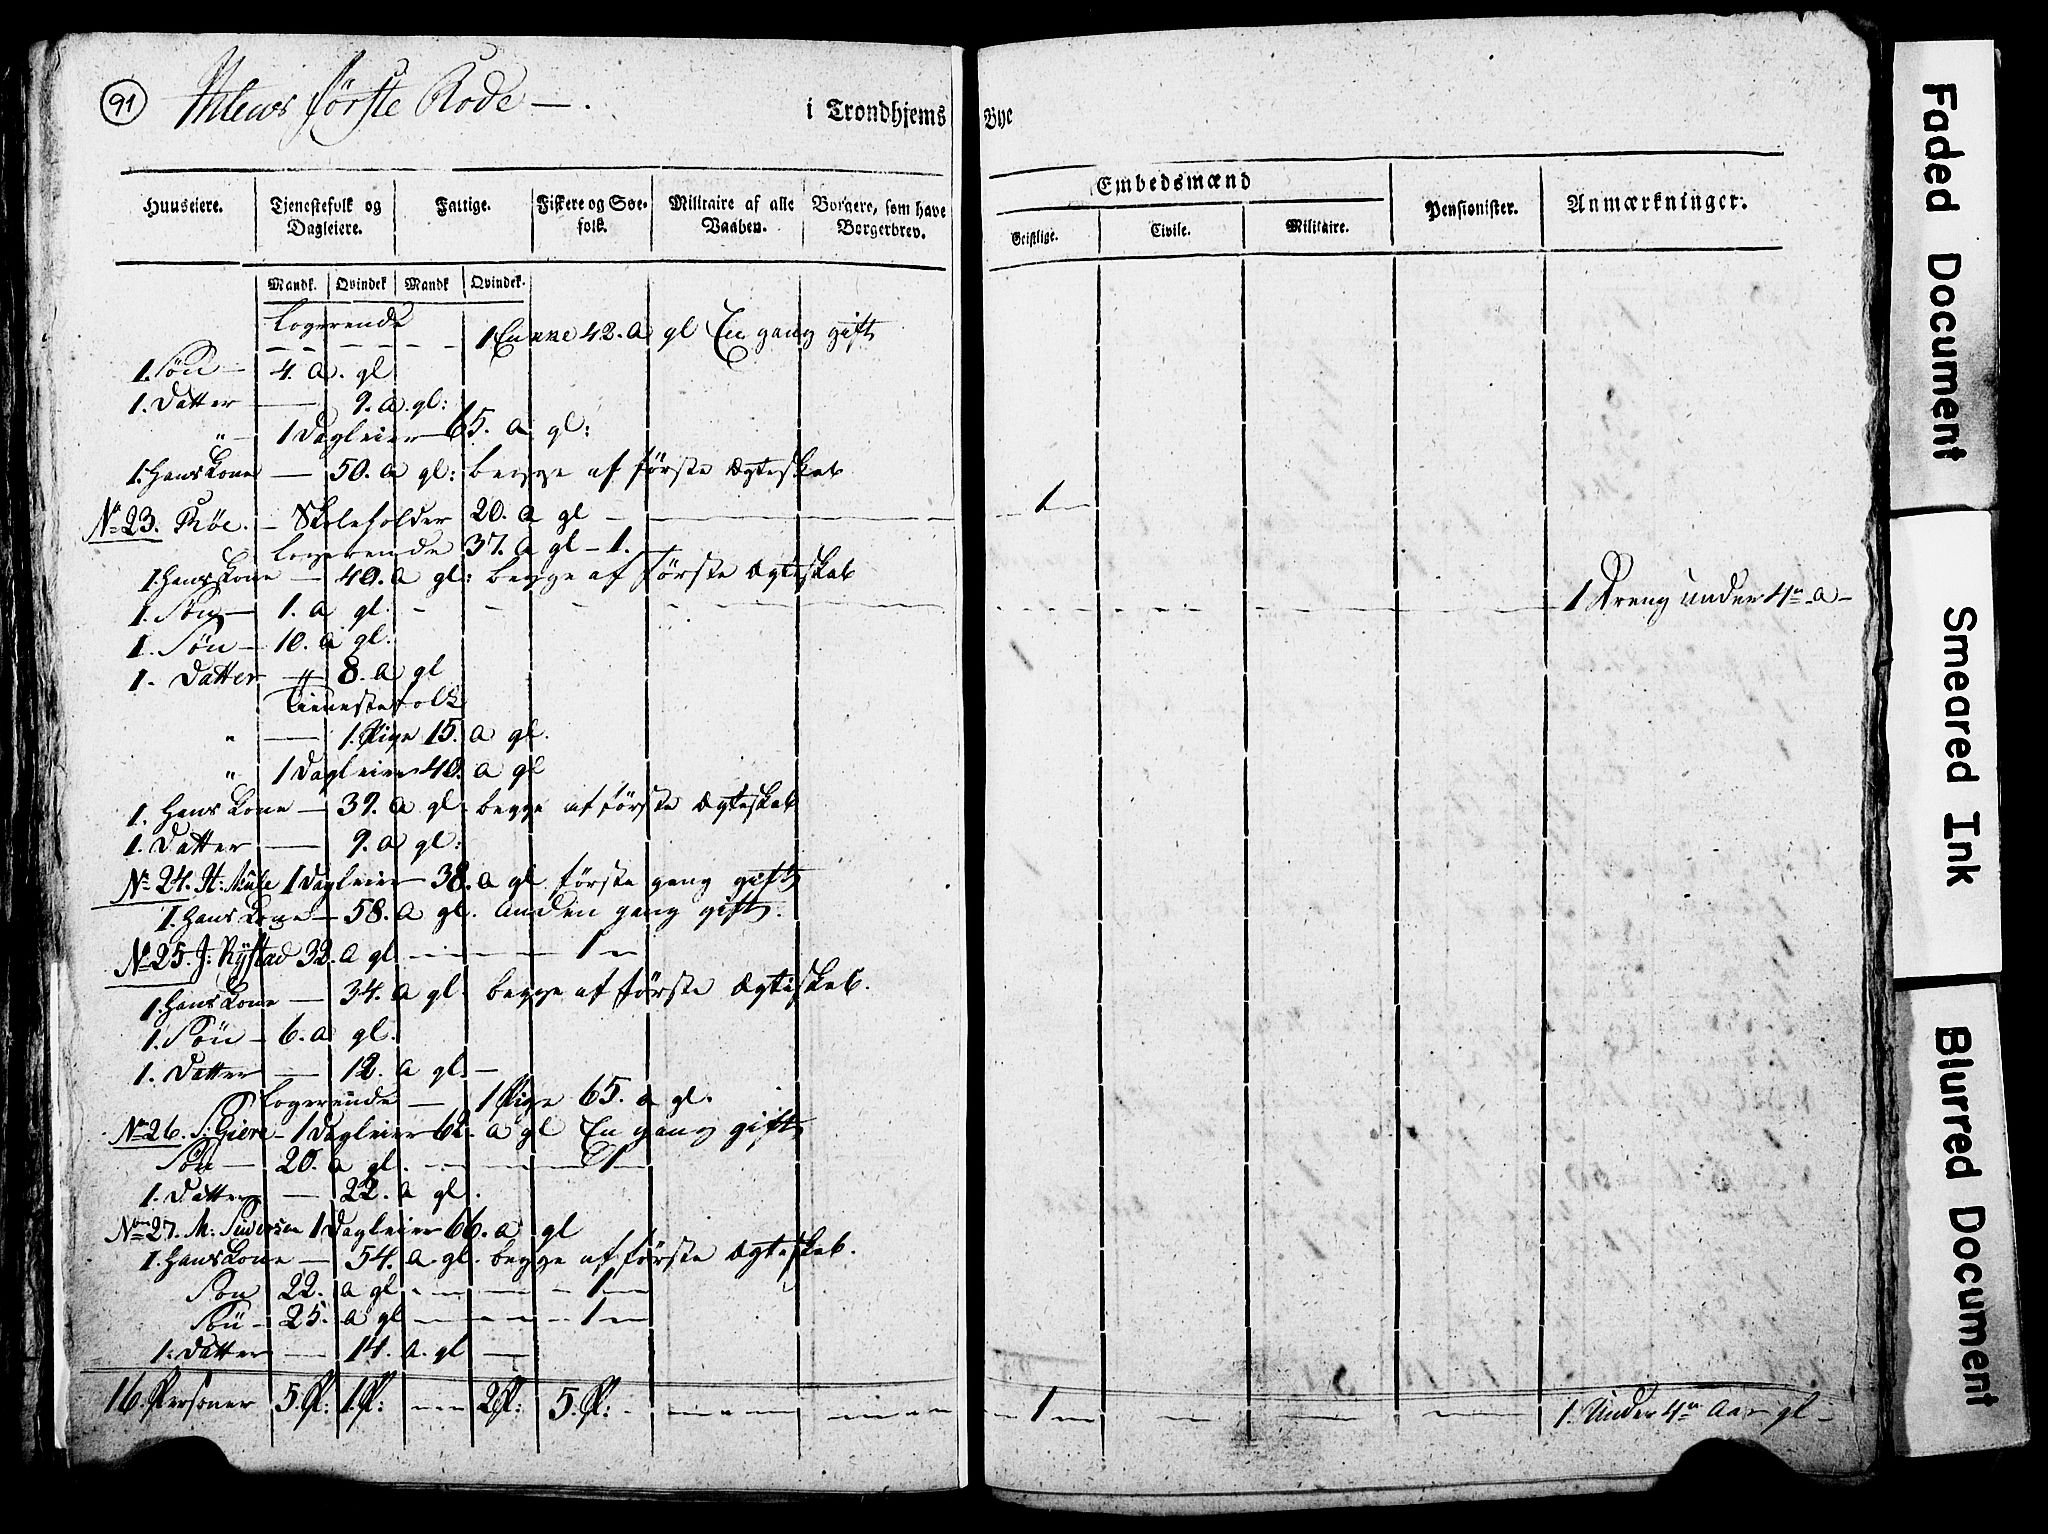 91
Første Rode
i Trondhjems Bye
Huuseiere. Tjenestefolk og Dagleiere. Fattige. Fiskere og Søefolk. Militaire af alle Vaaben. Borgere, som have Borgerbrev. Embedsmænd Pensionister. Anmærkninger.
Geistlige. Civile. Militaire.
Mandk. Qvindek Mandk Qvindek.
Logerende
1 Enke 42. a gl En gang gift
1. Søn - 4. a. gl
1. Datter - 9. a. gl:
" 1 Dagleier 65. a gl:
1. Hans Kone - 50. a gl: begge af første Ægteskab
No 23. Røe. - Skoleholder 20. a gl - 1 -
Logerende 37. a gl - 1.
1. Hans Kone - 40. a gl: begge af første Ægteskab
1. Søn - 1. a gl. - 1 Dreng under 4re a -
1. Søn - 10. a gl.
1. Datter " 8. a gl
Tienestefolk
" - 1. Pige 15. a gl.
" 1 Dagleier 40. a gl
1. Hans Kone - 39. a gl. begge af første Ægteskab
1. Datter - 9. a gl:
No 24. H: Mule 1 Dagleier 38. a gl første gang gift
1. Hans Kone - 58. a gl. anden gang gift.
No 25. J: Rÿstad 32. a gl - 1 -
1. Hans Kone - 34. a gl. begge af første Ægteskab.
1. Søn - 6. a gl.
1. Datter - 12. a gl. -
Logerende - 1 Pige 65. a gl.
No 26. Giere - 1 Dagleier 62. a gl En gang gift
Søn - 20. a gl. - 1 -
1. Datter - 22. a gl.
No 27. M: Siversen 1 Dagleier 66. a gl
1. Hans Kone - 54. a. gl. begge af første Ægteskab.
Søn 22. a gl. - 1 -
Søn - 25. a gl - 1 -
1. Datter - 14. a. gl -
16. Personer 5. P: 1. P: - 2 P: 5. P: - 1 - 1. Under 4re Aar gl -
Faded Document
Smeared Ink
Blurred Document